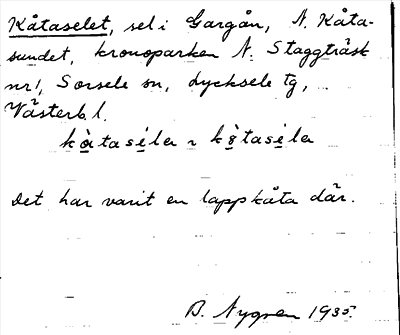 Kåtaselet, sel i Gargån, N. Kåta-
sundet, kronoparken N. Staggträsk
nr 1, Sorsele sn, Lycksele tg,
Västerb. l.
Det har varit en lappkåta där.
B. Nygren 1935.